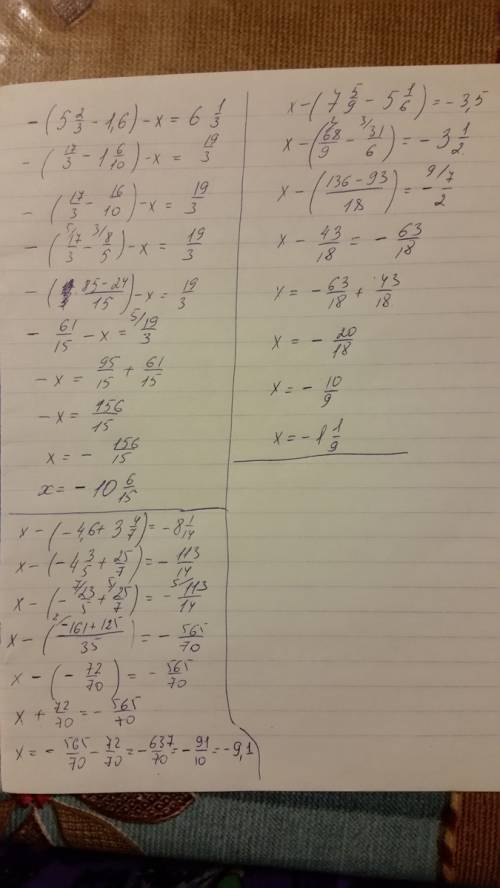 -(5 2/3 - 1,6) - x = 6 1/3
-(17/3 - 1 6/10) - x = 19/3
-(17/3 - 16/10) - x = 19/3
-(5/ 17/3 - 3/ 8/5) - x = 19/3
-(85-24/15) - x = 19/3
- 61/15 - x = 5/ 19/3
-x = 95/15 + 61/15
-x = 156/15
x = - 156/15
x = -10 6/15
x - (-4,6 + 3 4/7) = -8 1/14
x - (-4 3/5 + 25/7) = - 113/14
x - (- 7/ 23/5 + 5/ 25/7) = - 5/ 113/14
x - (2/ -161+125/35) = - 565/70
x - (- 72/70) = - 565/70
x + 72/70 = - 565/70
x = - 565/70 - 72/70 = - 637/70 = - 91/10 = -9,1
x - (7 5/9 - 5 1/6) = -3,5
x - (2/ 68/9 - 3/ 31/6) = -3 1/2
x - (136-93/18) = - 9/ 7/2
x - 43/18 = - 63/18
x = - 63/18 + 43/18
x = - 20/18
x = - 10/9
x = -1 1/9